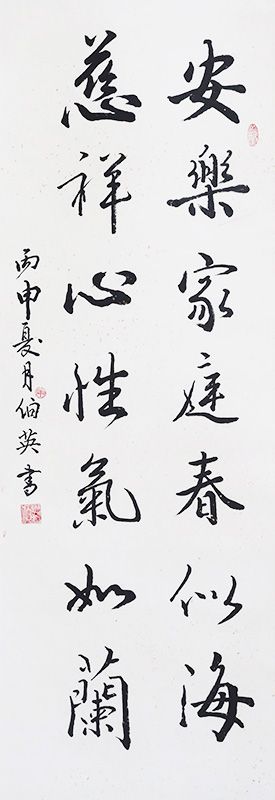 安樂家庭春似海
慈祥心性氣如蘭
丙申夏月伯英書